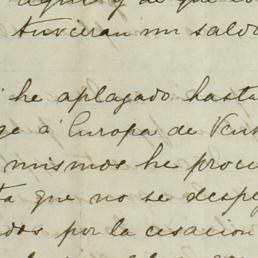 y de que
tuvieran mi saldo
he aplazado hasta
ge á Europa de Ven
mismos he procu
ta que no se despe
dos por la cesacion